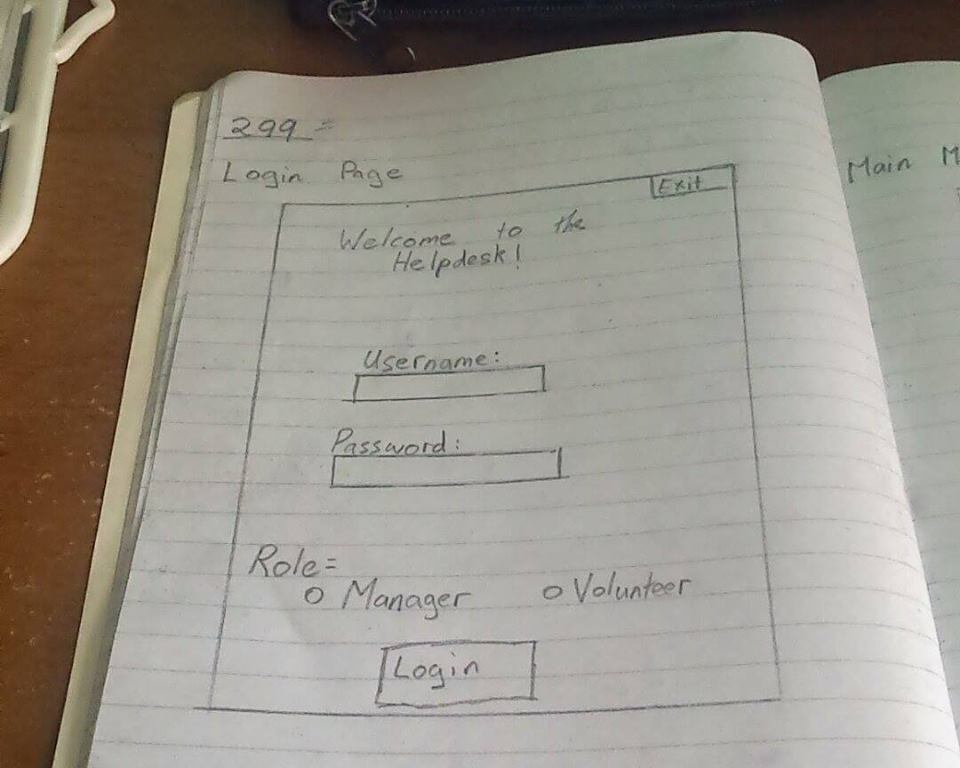 299 =
Login Page
Exit
Welcome to the
Helpdesk!
Username:
Password:
Role=
Manager
Volunteer
Login
Main